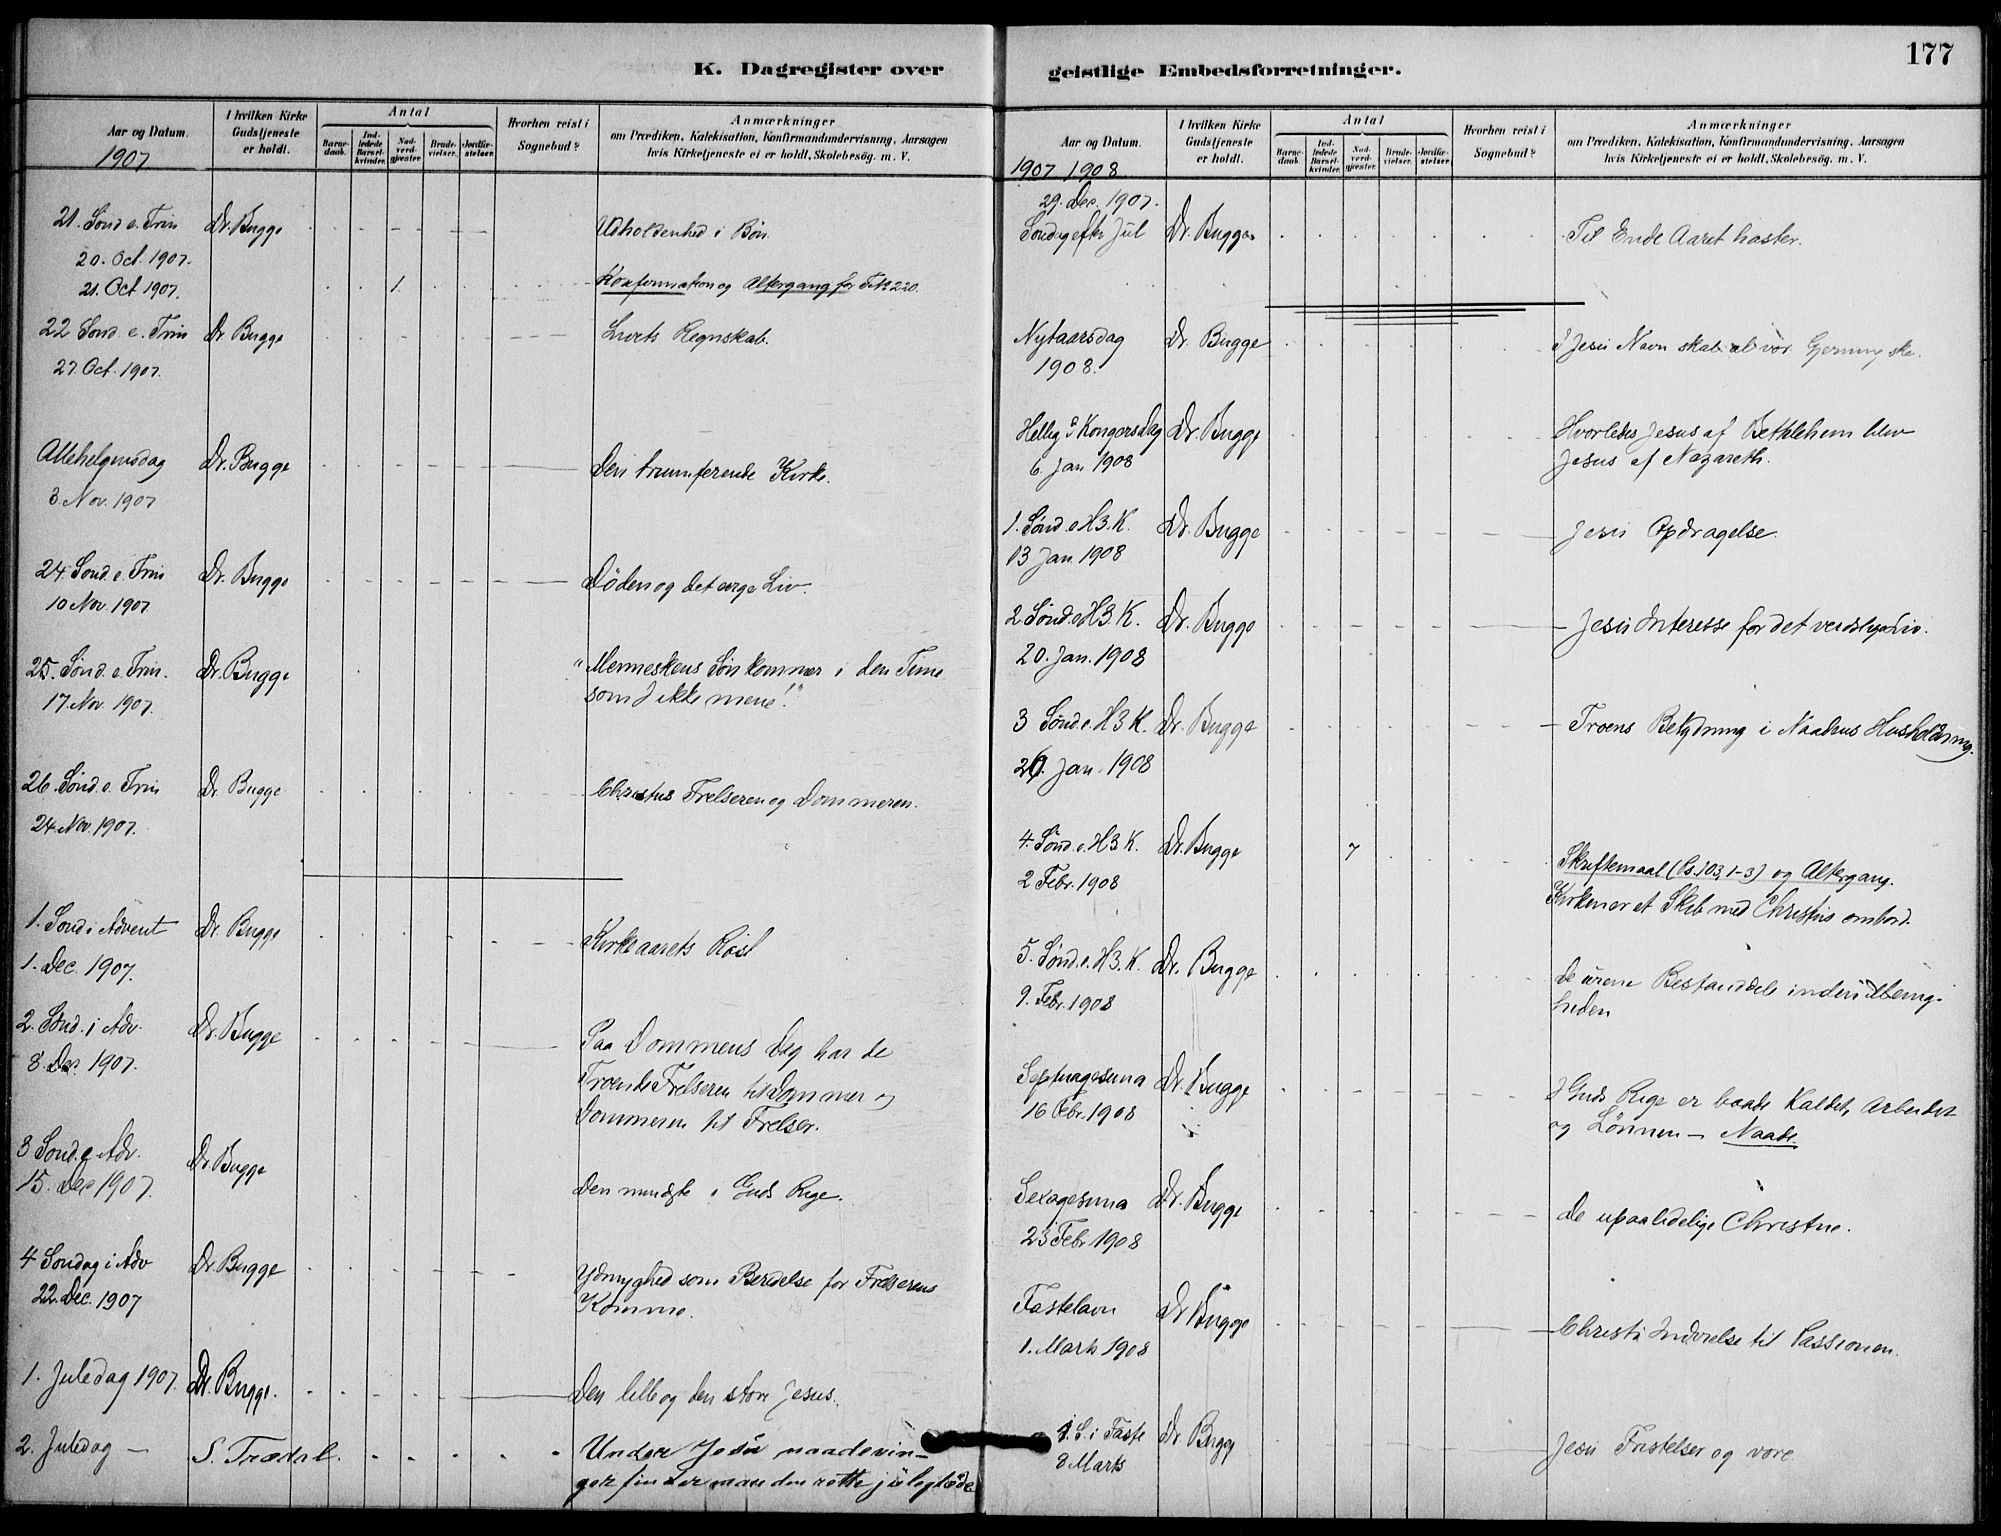 K. Dagregister over
Aar og Datum.
1907
I hvilken Kirke
Gudstjeneste
er holdt.
Antal
Barne-
daab.
Ind-
ledede
Barsel-
kvinder.
Nad-
verd-
gjæster.
Brude-
vielser.
Jordfæ-
stelser.
Hvorhen reist i
Sognebud?
Anmærkninger
om Prædiken, Katekisation, Konfirmandundervisning, Aarsagen
hvis Kirketjeneste ei er holdt, Skolebesög. m. V.
21. Sönd e. Trin Dr. Bugge Udholdenhed i Bön.
20. Oct. 1907.
21. Oct 1907. 1 Konfirmation og Altergang for 220.
22 Sönd. e. Trin Dr. Bugge Livets Regnskab.
27 Oct. 1907.
Allehelgensdag Dr. Bugge Den triumferende Kirke.
3. Nov. 1907
24. Sönd. e. Trin Dr. Bugge Döden og det evige Liv.
10 Nov. 1907
25. Sönd. e. Trin. Dr. Bugge "Menneskens Sön kommer i den Time
17. Nov. 1907. som I ikke mene!"
26. Sönd. e. Trin Dr. Bugge Christus Frelseren og Dommeren.
24. Nov. 1907.
1. Sönd i Advent Dr. Bugge Kirkeaarets Röst
1. Dec. 1907.
2. Sönd. i Adv. Dr. Bugge Paa Dommens Dag har de
8. Dec. 1907. Troende Frelseren til Dommer og
Dommeren til Frelser.
3 Sönd. e Adv. Dr Bugge
15. Dec 1907. Den mindste i Guds Rige.
4 Sondag i Adv Dr Bugge Ydmyghed som Beredelse for Frelserens
22. Dec. 1907 Komme.
1. Juledag 1907. Dr. Bugge. Den lille og den store Jesus.
2. Juledag — S. Trædal. Under Jesu naadevin-
ger finder man den rette juleglæde
geistlige Embedsforretninger.
177
Aar og Datum.
1907 1908
I hvilken Kirke
Gudstjeneste
er holdt.
Antal
Barne-
daab.
Ind-
ledede
Barsel-
kvinder.
Nad-
verd-
gjæster.
Brude-
vielser.
Jordfæ-
stelser.
Hvorhen reist i
Sognebud?
Anmærkninger
om Prædiken, Katekisation, Konfirmandundervisning, Aarsagen
hvis Kirketjeneste ei er holdt, Skolebesög. m. V.
29. Dec. 1907.
Sondag efter Jul Dr. Bugge Til Ende Aaret haster.
Nytaarsdag Dr. Bugge I Jesu Navn skal al vor Gjerning ske.
1908.
Hellig 3 Kongersdag Dr. Bugge Hvorledes Jesus af Bethlehem blev
6. Jan 1908 Jesus af Nazareth.
1. Sönd. e H3. K. Dr. Bugge Jesu Opdragelse.
13 Jan 1908
2. Sönd. e H3. K. Dr. Bugge Jesu Interesse for det verdslige Liv.
20. Jan. 1908
3 Sönd e. H3 K. Dr. Bugge Troens Betydning i Naadens Husholdning.
26. Jan. 1908
4. Sönd. e. H3 K. Dr. Bugge 7
2 Febr. 1908 Skriftemaal (Ps. 103, 1-3) og Altergang.
Kirken er et Skib med Christus ombord.
5. Sönd. e. H3. K. Dr. Bugge De urene Bestanddele i
9. Febr. 1908 heden
Septuagesima Dr. Bugge I Guds Rige er baade Kaldet, Arbeidet
16 Febr. 1908 og Lönnen — Naade.
Sexagesima Dr. Bugge De upaalidelige Christne.
23 Febr 1908
Fastelavn Dr Bugge Christi Indvielse til Passionen.
1. Marts 1908
1. S. i Faste Dr Bugge Jesu Fristelser og vore
8 Marts